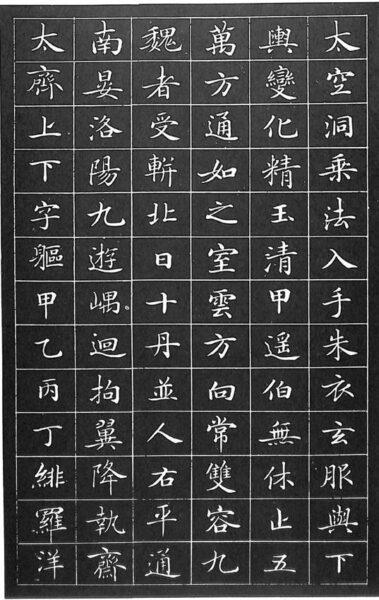 太空洞乘法入手朱衣玄服與下
輿變化精玉清甲遥伯無休止五
萬方通如之室雲方向常雙容九
魏者受輧北日十丹並人右平通
南晏洛陽九遊嵎迴拘翼降執齋
太齊上下字軀甲乙丙丁緋羅洋